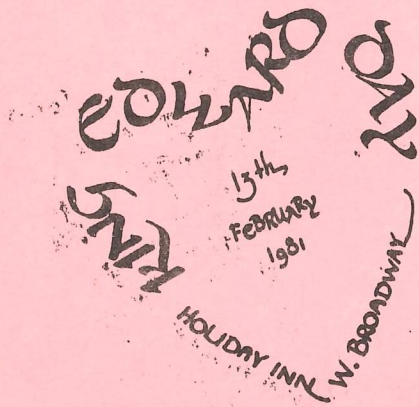 KING EDWARD
13th
FEBRUARY
1981
HOLIDAY INN W. BROADWAY